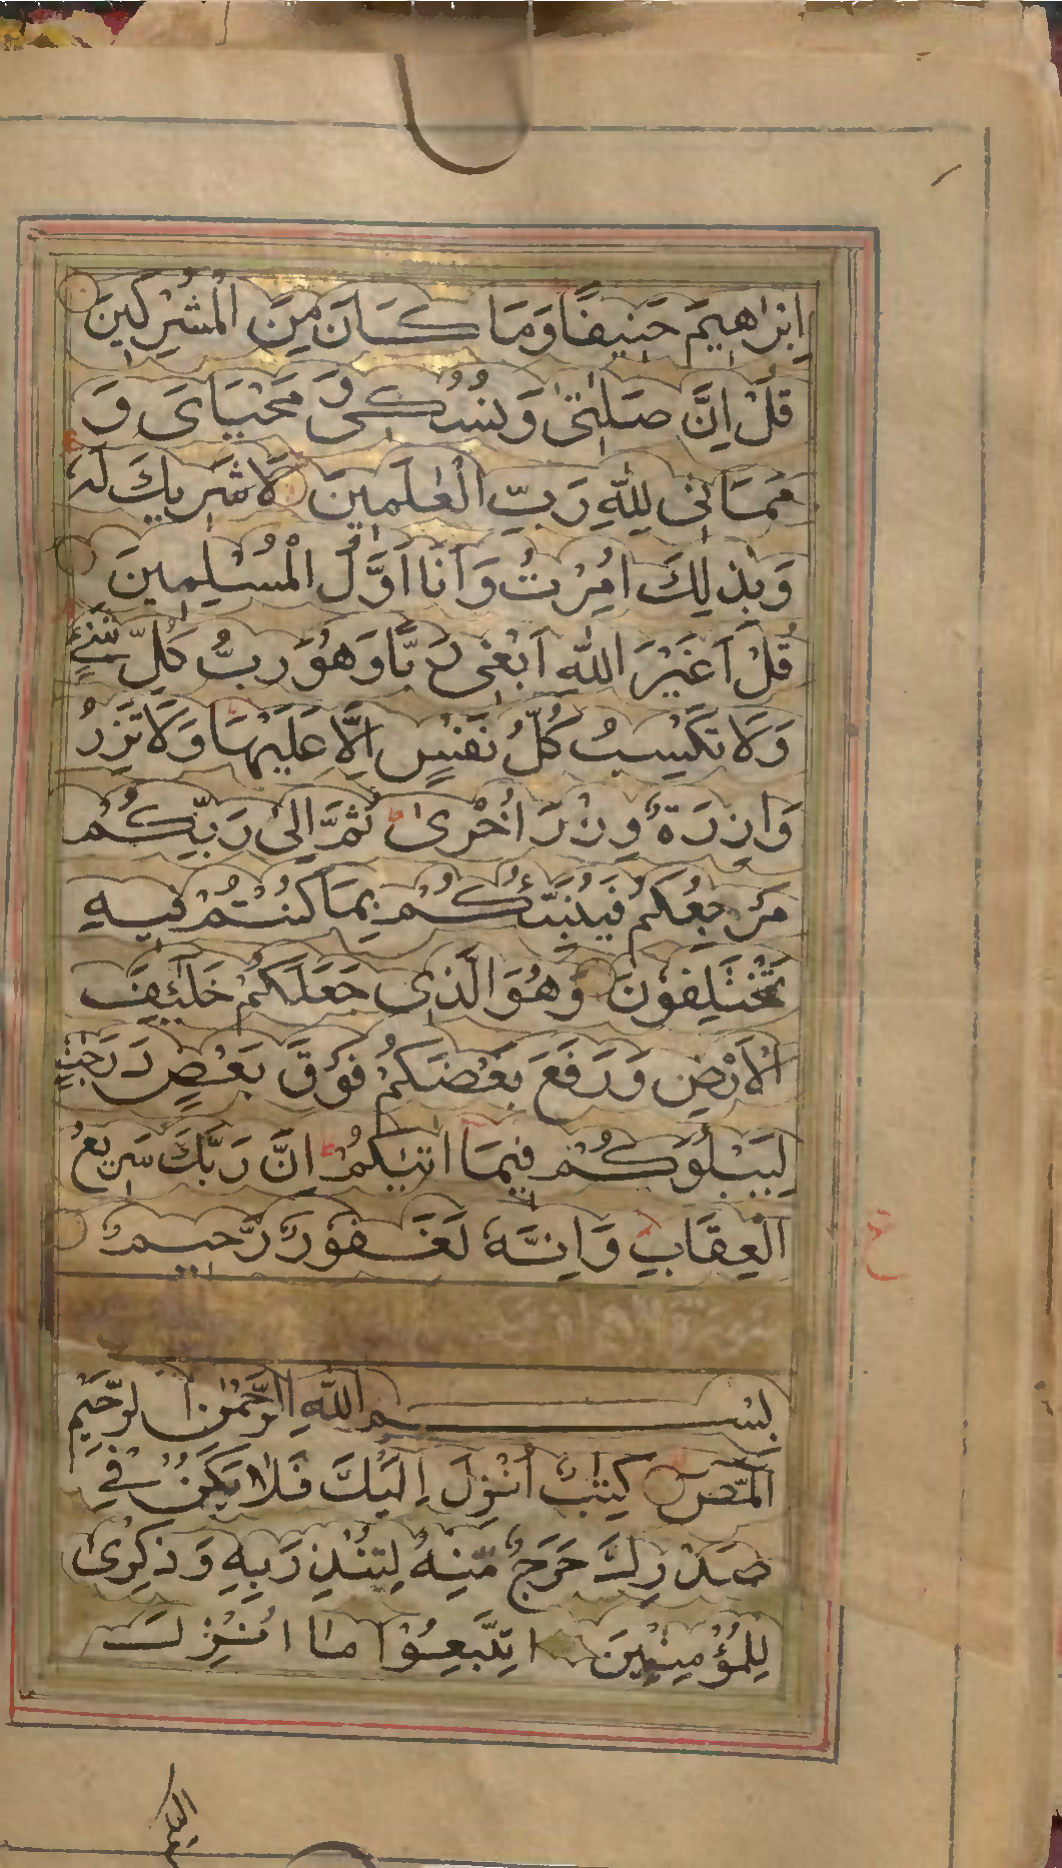 اِبْرٰاهِيمَ حَنِيفًا وَمَا كَانَ مِنَ الْمُشْرِكِينَ
قُلْ اِنَّ صَلٰتِى وَنُسُكِى وَ مَحْيَاىَ وَ
مَمَاتِى لِلّٰهِ رَبِّ الْعٰلَمِينَ لَا شَرِيكَ لَهٗ
وَبِذٰلِكَ اُمِرْتُ وَاَنَا اَوَّلُ الْمُسْلِمِينَ
قُلْ اَغَيْرَ اللّٰهِ اَبْغِى رَبًّا وَهُوَ رَبُّ كُلِّ شَىْءٍ
وَلَا تَكْسِبُ كُلُّ نَفْسٍ اِلَّا عَلَيْهَا وَلَا تَزِرُ
وَازِرَةٌ وِزْرَ اُخْرٰى ثُمَّ اِلٰى رَبِّكُمْ
مَرْجِعُكُمْ فَيُنَبِّئُكُمْ بِمَا كُنْتُمْ فِيهِ
تَخْتَلِفُونَ وَهُوَ الَّذِى جَعَلَكُمْ خَلٰٓئِفَ
الْاَرْضِ وَرَفَعَ بَعْضَكُمْ فَوْقَ بَعْضٍ دَرَجٰتٍ
لِيَبْلُوَكُمْ فِيمَا اٰتٰىكُمْ اِنَّ رَبَّكَ سَرِيعُ
الْعِقَابِ وَاِنَّهٗ لَغَفُورٌ رَّحِيمٌ
ع
بِسْمِ اللّٰهِ الرَّحْمٰنِ الرَّحِيمِ
الٓمّٓصٓ كِتٰبٌ اُنْزِلَ اِلَيْكَ فَلَا يَكُنْ فِى
صَدْرِكَ حَرَجٌ مِّنْهُ لِتُنْذِرَ بِهِ وَذِكْرٰى
لِلْمُؤْمِنِينَ اِتَّبِعُوْا مَا اُنْزِلَ
اليكم